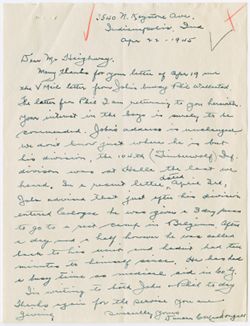 3540 N. Keystone Ave.
Indianapolis, Ind
Apr 22 - 1945
Dear Mr Heighway.
Many thanks for your letter of Apr 19 and
the V Mail letter from John's buddy Phil
The letter from Phil I am returning to you herewith.
Your interest in the boys is surely to be
commended. John's address is unchanged
we don't know just where he is but
his division, the 104th (Timberwolf) Inf.
division was at Halle the last we
heard. In a recent letter, dated April 3rd,
John advised that just after his division
entered Cologne he was given a 3 day pass
to go to a rest camp in Belgium. After
a day and a half however he was called
back to his unit and hadn't had two
minutes to himself since. He has had
a busy time as medical aid in Co G.
Am writing to both John & Phil to day
Thanks again for the service you are
giving
Sincerely yours